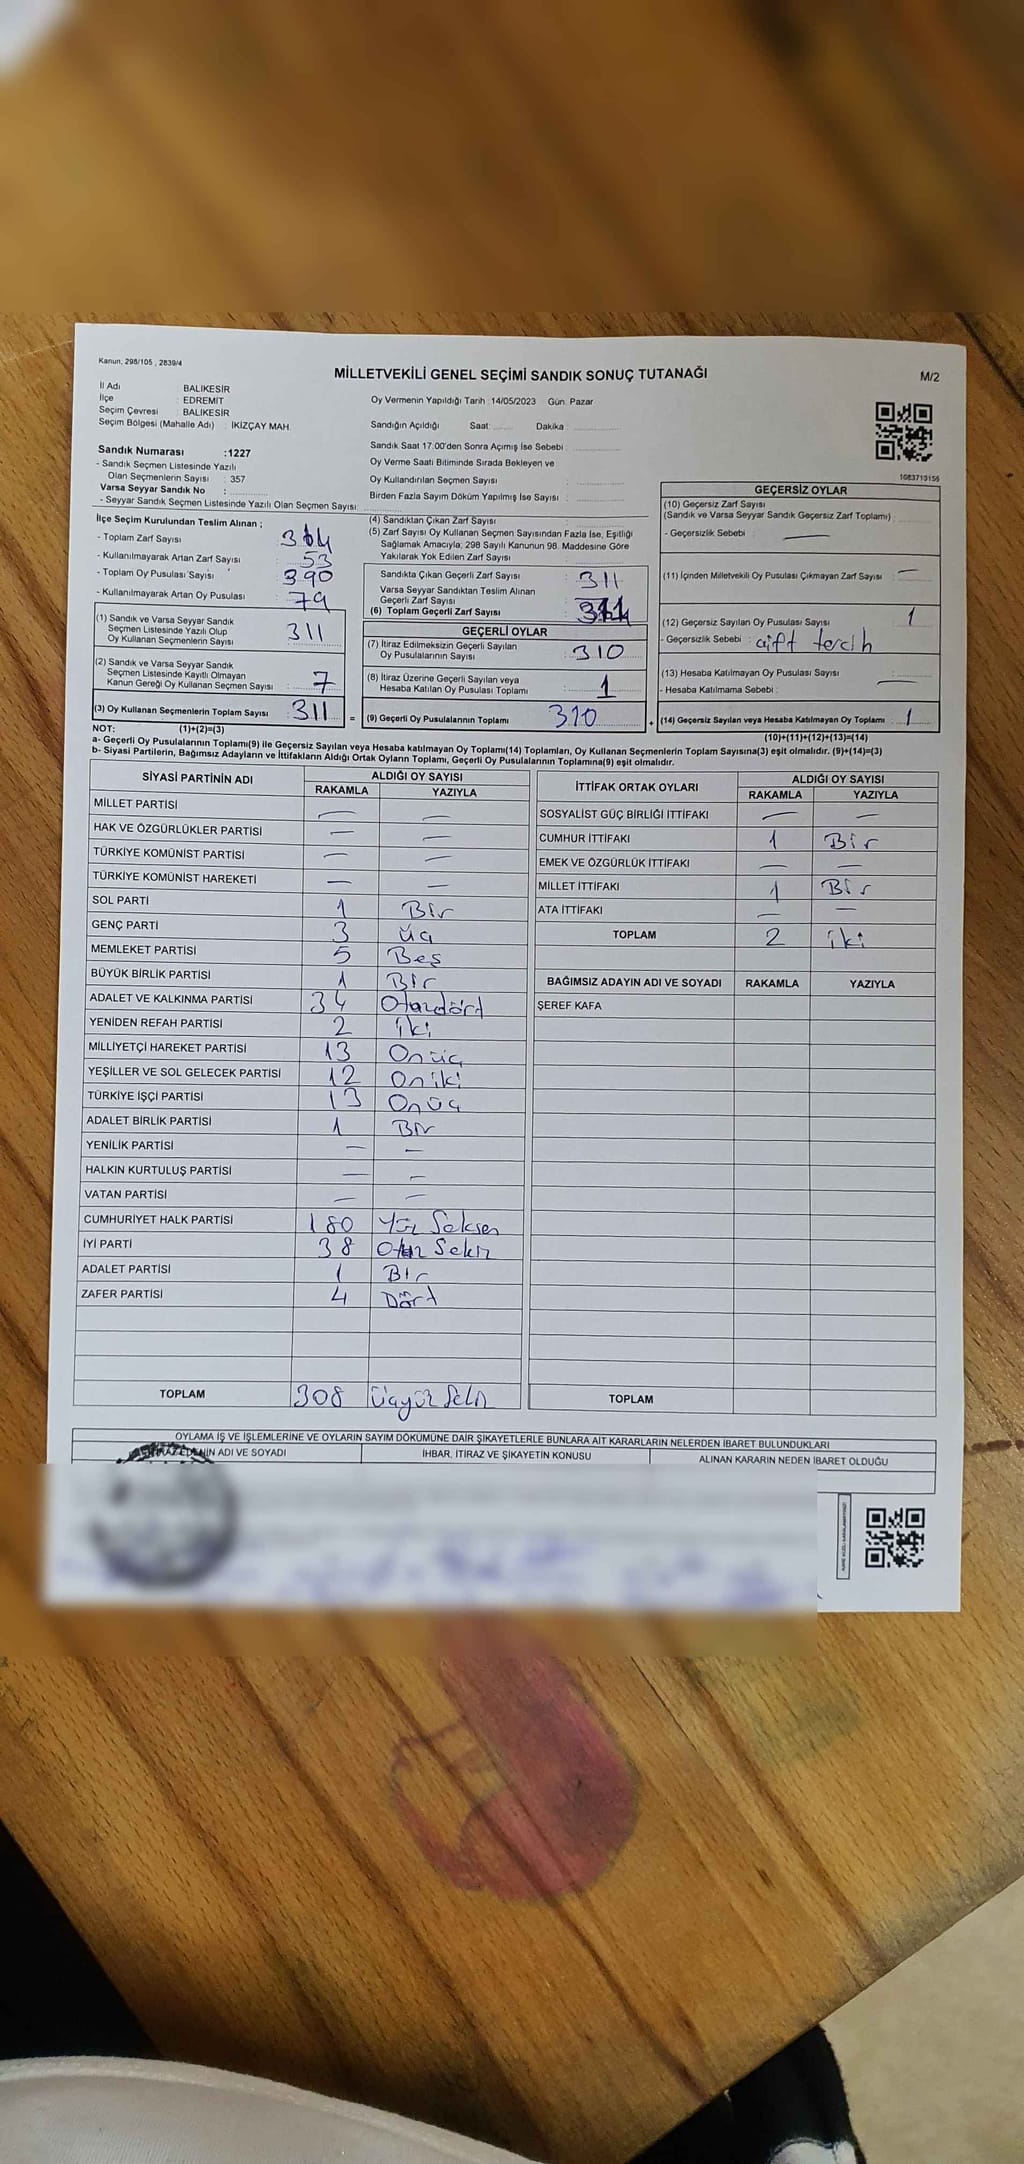 Kanun, 298/105 , 2839/4
MİLLETVEKİLİ GENEL SEÇİMİ SANDIK SONUÇ TUTANAĞI
M/2
İl Adı : BALIKESİR
İlçe : EDREMİT
Seçim Çevresi : BALIKESİR
Seçim Bölgesi (Mahalle Adı) : İKİZÇAY MAH.
Oy Vermenin Yapıldığı Tarih : 14/05/2023 Gün: Pazar
Sandığın Açıldığı Saat: Dakika :
Sandık Saat 17:00'den Sonra Açımış İse Sebebi :
Oy Verme Saati Bitiminde Sırada Bekleyen ve
Oy Kullandırılan Seçmen Sayısı :
Birden Fazla Sayım Döküm Yapılmış İse Sayısı :
1083713156
Sandık Numarası :1227
- Sandık Seçmen Listesinde Yazılı
Olan Seçmenlerin Sayısı : 357
Varsa Seyyar Sandık No :
- Seyyar Sandık Seçmen Listesinde Yazılı Olan Seçmen Sayısı:
İlçe Seçim Kurulundan Teslim Alınan ;
- Toplam Zarf Sayısı : 364
- Kullanılmayarak Artan Zarf Sayısı : 53
- Toplam Oy Pusulası Sayısı : 390
- Kullanılmayarak Artan Oy Pusulası : 79
(1) Sandık ve Varsa Seyyar Sandık
Seçmen Listesinde Yazılı Olup
Oy Kullanan Seçmenlerin Sayısı : 311
(2) Sandık ve Varsa Seyyar Sandık
Seçmen Listesinde Kayıtlı Olmayan
Kanun Gereği Oy Kullanan Seçmen Sayısı : 7
(3) Oy Kullanan Seçmenlerin Toplam Sayısı : 311
(4) Sandıktan Çıkan Zarf Sayısı :
(5) Zarf Sayısı Oy Kullanan Seçmen Sayısından Fazla İse, Eşitliği
Sağlamak Amacıyla, 298 Sayılı Kanunun 98. Maddesine Göre
Yakılarak Yok Edilen Zarf Sayısı :
Sandıkta Çıkan Geçerli Zarf Sayısı : 311
Varsa Seyyar Sandıktan Teslim Alınan
Geçerli Zarf Sayısı :
(6) Toplam Geçerli Zarf Sayısı : 311
GEÇERLİ OYLAR
(7) İtiraz Edilmeksizin Geçerli Sayılan
Oy Pusulalarının Sayısı : 310
(8) İtiraz Üzerine Geçerli Sayılan veya
Hesaba Katılan Oy Pusulası Toplamı : 1
= (9) Geçerli Oy Pusulalarının Toplamı : 310
GEÇERSİZ OYLAR
(10) Geçersiz Zarf Sayısı
(Sandık ve Varsa Seyyar Sandık Geçersiz Zarf Toplamı) :
- Geçersizlik Sebebi : —
(11) İçinden Milletvekili Oy Pusulası Çıkmayan Zarf Sayısı : —
(12) Geçersiz Sayılan Oy Pusulası Sayısı : 1
- Geçersizlik Sebebi : çift tercih
(13) Hesaba Katılmayan Oy Pusulası Sayısı : —
- Hesaba Katılmama Sebebi :
+ (14) Geçersiz Sayılan veya Hesaba Katılmayan Oy Toplamı : 1
NOT: (1)+(2)=(3)
(10)+(11)+(12)+(13)=(14)
a- Geçerli Oy Pusulalarının Toplamı(9) ile Geçersiz Sayılan veya Hesaba katılmayan Oy Toplamı(14) Toplamları, Oy Kullanan Seçmenlerin Toplam Sayısına(3) eşit olmalıdır. (9)+(14)=(3)
b- Siyasi Partilerin, Bağımsız Adayların ve İttifakların Aldığı Ortak Oyların Toplamı, Geçerli Oy Pusulalarının Toplamına(9) eşit olmalıdır.
SİYASİ PARTİNİN ADI ALDIĞI OY SAYISI
RAKAMLA YAZIYLA
MİLLET PARTİSİ — —
HAK VE ÖZGÜRLÜKLER PARTİSİ — —
TÜRKİYE KOMÜNİST PARTİSİ — —
TÜRKİYE KOMÜNİST HAREKETİ — —
SOL PARTİ 1 Bir
GENÇ PARTİ 3 üç
MEMLEKET PARTİSİ 5 Beş
BÜYÜK BİRLİK PARTİSİ 1 Bir
ADALET VE KALKINMA PARTİSİ 34 Otuzdört
YENİDEN REFAH PARTİSİ 2 iki
MİLLİYETÇİ HAREKET PARTİSİ 13 Onüç
YEŞİLLER VE SOL GELECEK PARTİSİ 12 Oniki
TÜRKİYE İŞÇİ PARTİSİ 13 Onüç
ADALET BİRLİK PARTİSİ 1 Bir
YENİLİK PARTİSİ — —
HALKIN KURTULUŞ PARTİSİ — —
VATAN PARTİSİ — —
CUMHURİYET HALK PARTİSİ 180 Yüz Seksen
İYİ PARTİ 38 Otuz Sekiz
ADALET PARTİSİ 1 Bir
ZAFER PARTİSİ 4 Dört
TOPLAM 308 üçyüz Sekiz
İTTİFAK ORTAK OYLARI ALDIĞI OY SAYISI
RAKAMLA YAZIYLA
SOSYALİST GÜÇ BİRLİĞİ İTTİFAKI — —
CUMHUR İTTİFAKI 1 Bir
EMEK VE ÖZGÜRLÜK İTTİFAKI — —
MİLLET İTTİFAKI 1 Bir
ATA İTTİFAKI — —
TOPLAM 2 iki
BAĞIMSIZ ADAYIN ADI VE SOYADI RAKAMLA YAZIYLA
ŞEREF KAFA
TOPLAM
OYLAMA İŞ VE İŞLEMLERİNE VE OYLARIN SAYIM DÖKÜMÜNE DAİR ŞİKAYETLERLE BUNLARA AİT KARARLARIN NELERDEN İBARET BULUNDUKLARI
ADI VE SOYADI İHBAR, İTİRAZ VE ŞİKAYETİN KONUSU ALINAN KARARIN NEDEN İBARET OLDUĞU